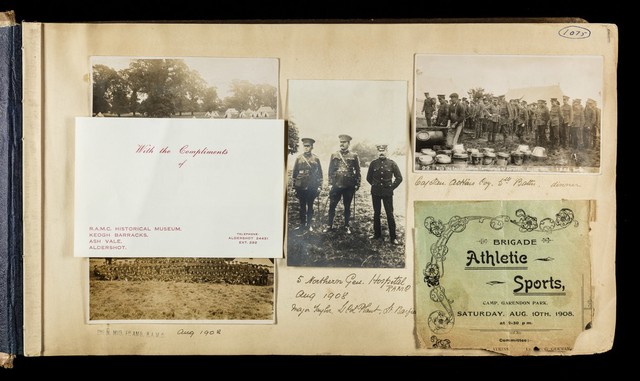 1075
With the Compliments
of
R.A.M.C. HISTORICAL MUSEUM.
KEOGH BARRACKS,
ASH VALE,
ALDERSHOT.
TELEPHONE
ALDERSHOT 24431
EXT. 220
Aug 1908
5 Northern Gen. Hospital
RAMC
Aug 1908
Major Taylor S. Col Plant
Captain Askins Coy. 5th Battn dinner
BRIGADE
Athletic
Sports,
CAMP, GARENDON PARK,
SATURDAY, AUG. 10TH, 1908,
at 2:30 p.m.
Committee: